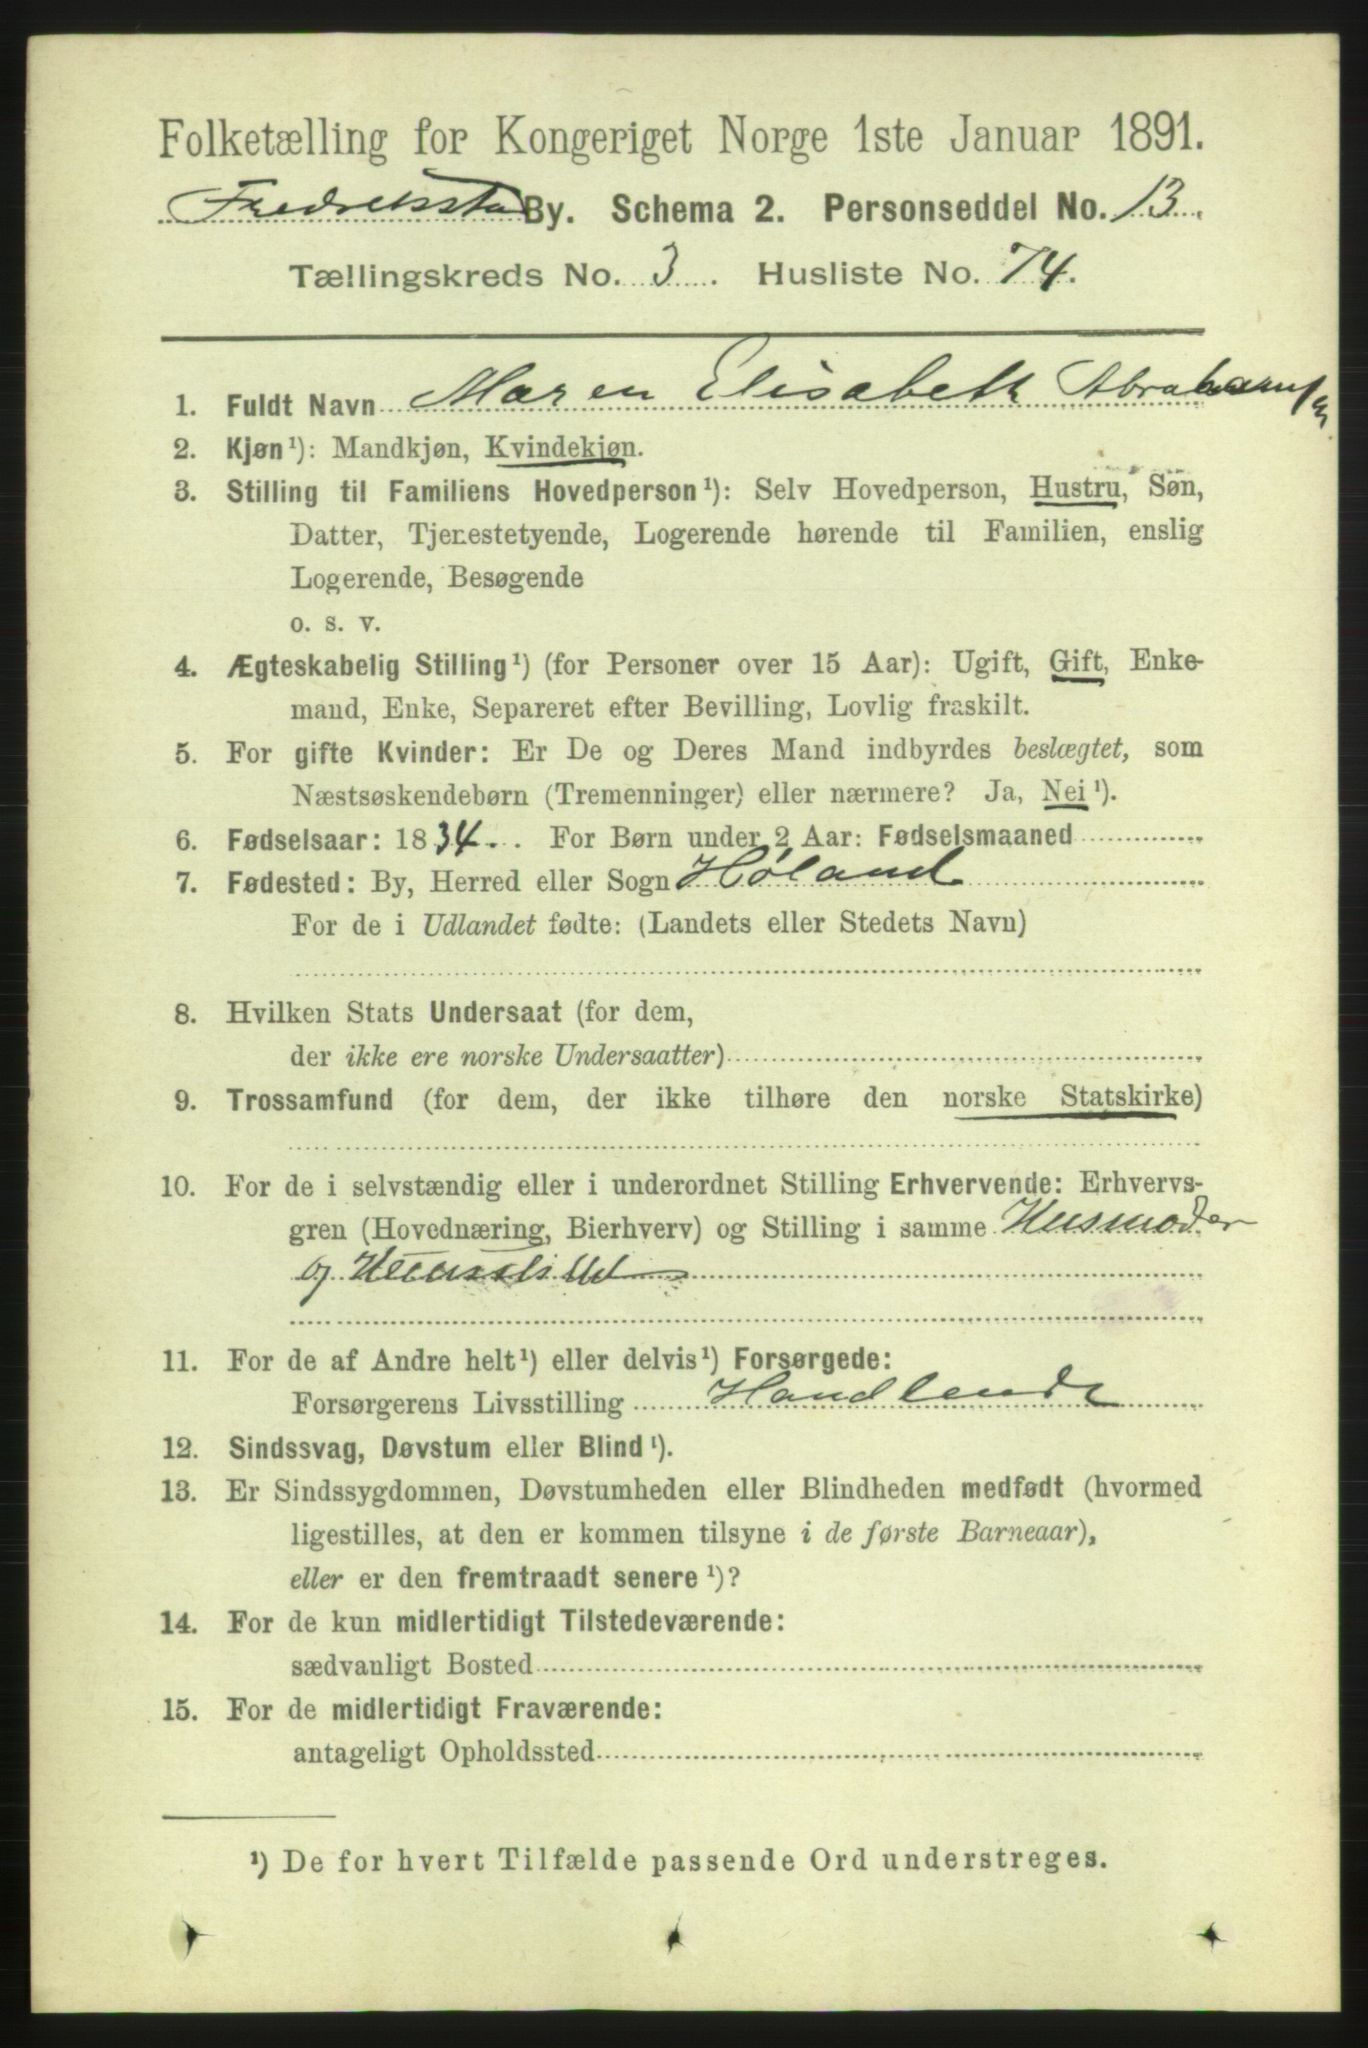 Folketælling for Kongeriget Norge 1ste Januar 1891.
Fredriksstad By. Schema 2. Personseddel No. 13.
Tællingskreds No. 3. Husliste No. 74.
1. Fuldt Navn Maren Elisabeth Abrahamsen
2. Kjøn¹): Mandkjøn, Kvindekjøn.
3. Stilling til Familiens Hovedperson¹): Selv Hovedperson, Hustru, Søn,
Datter, Tjenestetyende, Logerende hørende til Familien, enslig
Logerende, Besøgende
o. s. v.
4. Ægteskabelig Stilling¹) (for Personer over 15 Aar): Ugift, Gift, Enke-
mand, Enke, Separeret efter Bevilling, Lovlig fraskilt.
5. For gifte Kvinder: Er De og Deres Mand indbyrdes beslægtet, som
Næstsøskendebørn (Tremenninger) eller nærmere? Ja, Nei¹).
6. Fødselsaar: 1834. For Børn under 2 Aar: Fødselsmaaned
7. Fødested: By, Herred eller Sogn Høland
For de i Udlandet fødte: (Landets eller Stedets Navn)
8. Hvilken Stats Undersaat (for dem,
der ikke ere norske Undersaatter)
9. Trossamfund (for dem, der ikke tilhøre den norske Statskirke)
10. For de i selvstændig eller i underordnet Stilling Erhvervende: Erhvervs-
gren (Hovednæring, Bierhverv) og Stilling i samme Husmoder
og
11. For de af Andre helt¹) eller delvis¹) Forsørgede:
Forsørgerens Livsstilling Handlende
12. Sindssvag, Døvstum eller Blind¹).
13. Er Sindssygdommen, Døvstumheden eller Blindheden medfødt (hvormed
ligestilles, at den er kommen tilsyne i de første Barneaar),
eller er den fremtraadt senere¹)?
14. For de kun midlertidigt Tilstedeværende:
sædvanligt Bosted
15. For de midlertidigt Fraværende:
antageligt Opholdssted
¹) De for hvert Tilfælde passende Ord understreges.